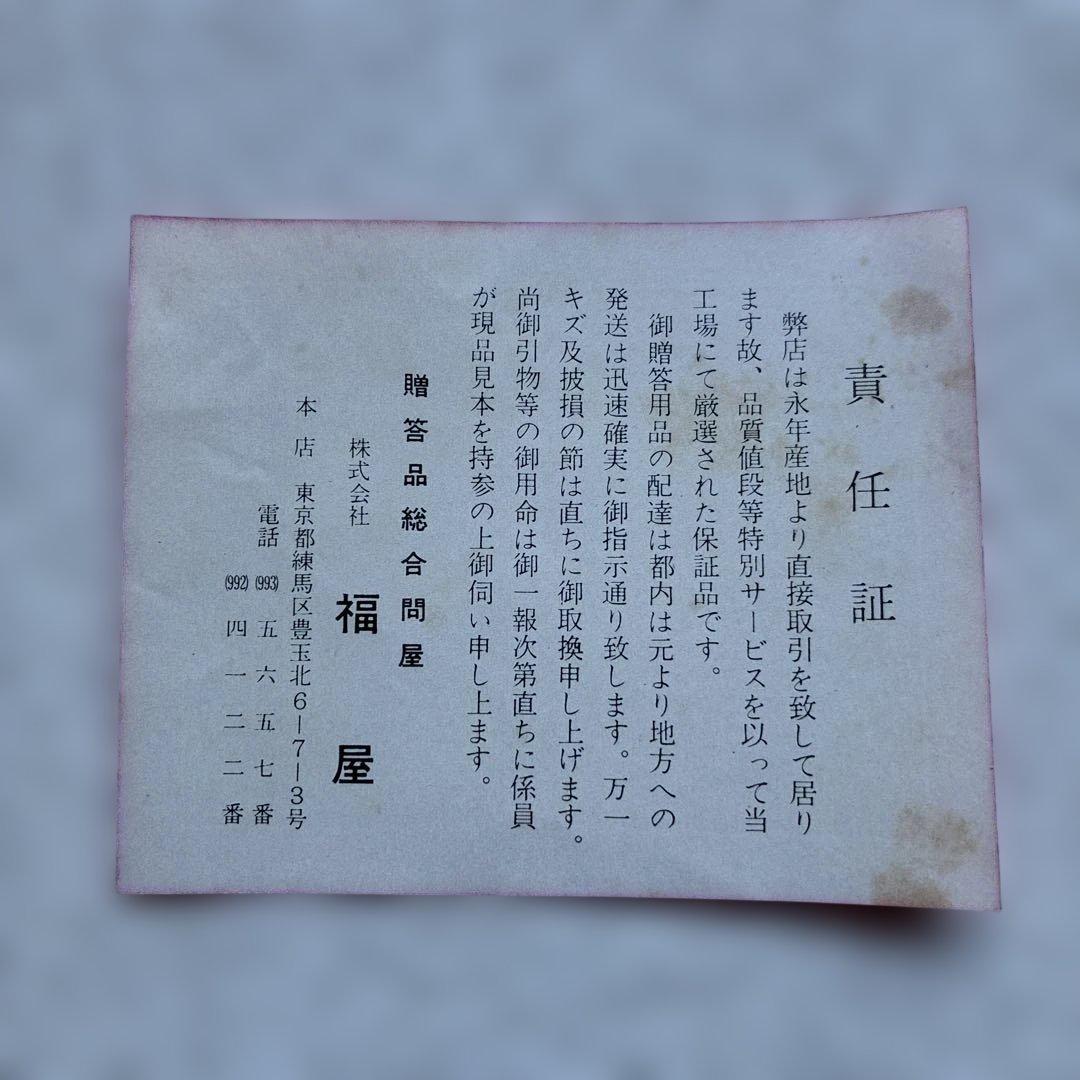 責任証
弊店は永年産地より直接取引を致して居り
ます故、品質値段等特別サービスを以って当
工場にて厳選された保証品です。
御贈答用品の配達は都内は元より地方への
発送は迅速確実に御指示通り致します。万一
キズ及披損の節は直ちに御取換申し上げます。
尚御引物等の御用命は御一報次第直ちに係員
が現品見本を持参の上御伺い申し上ます。
贈答品総合問屋
株式会社 福屋
本店 東京都練馬区豊玉北6-7-3号
電話 (993) 五六五七番
(992) 四一二二番